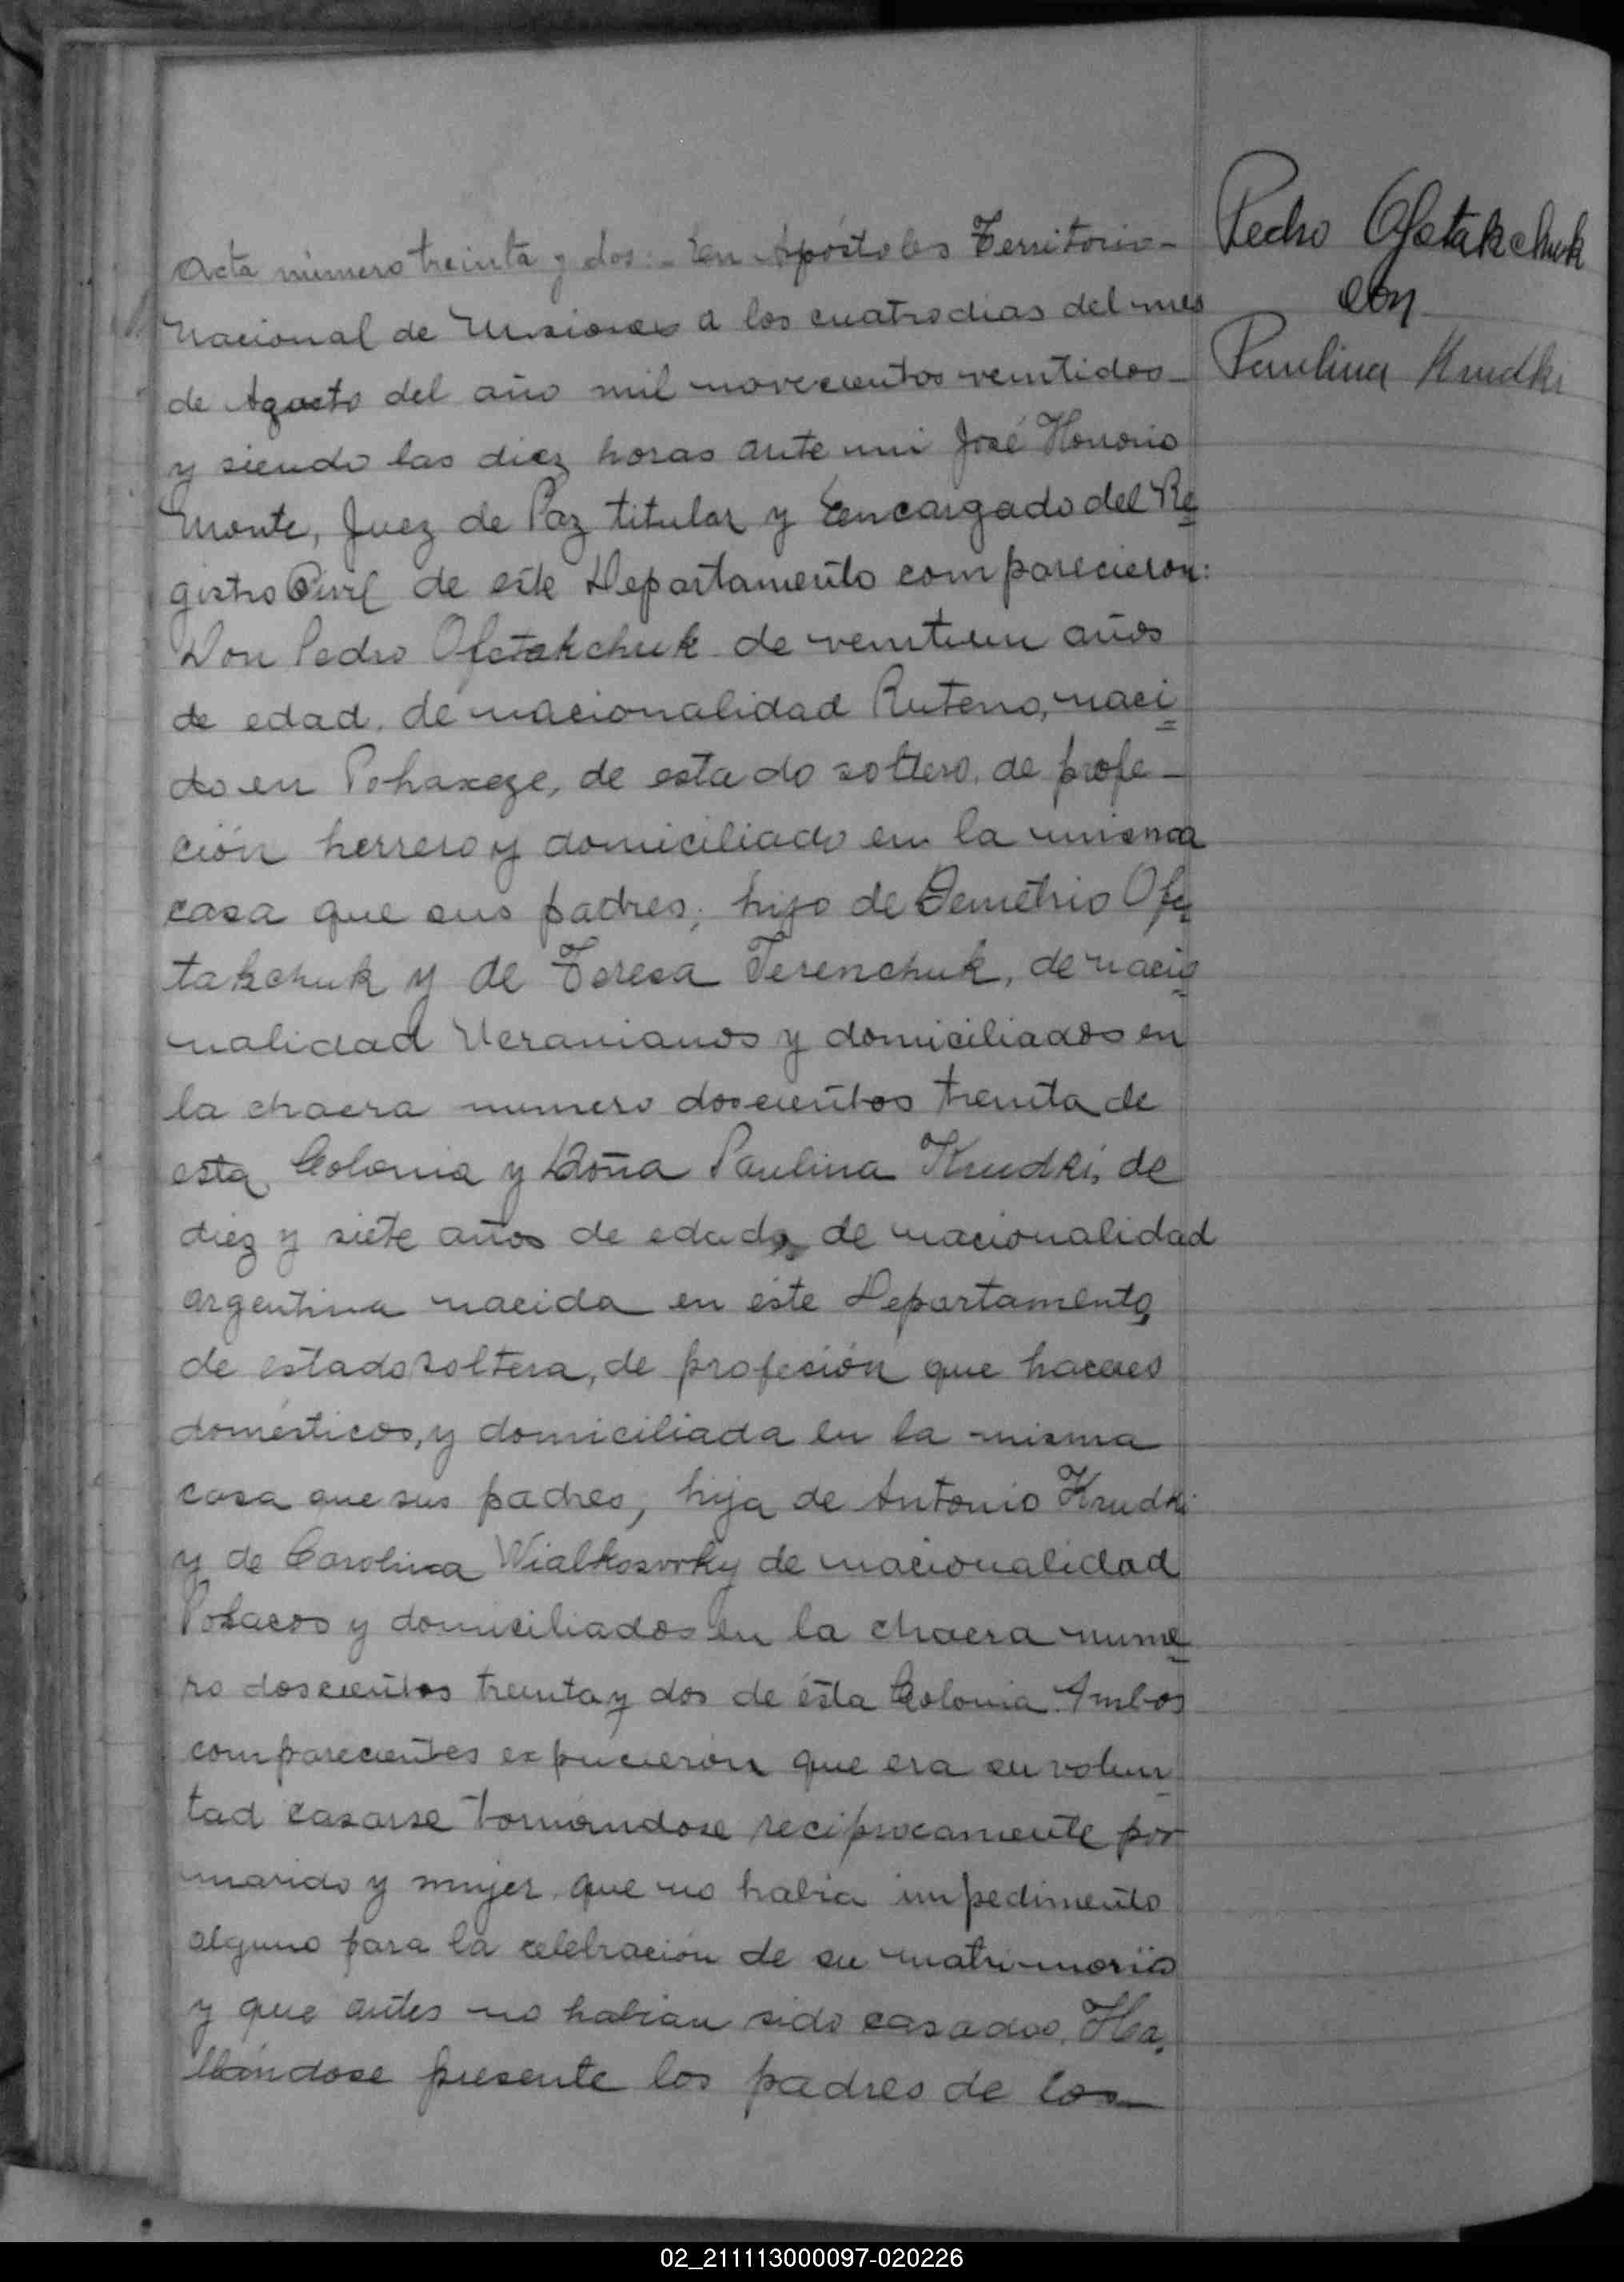 Acta número treinta y dos:- En Apóstoles Territorio-
Nacional de Misiones a los cuatro dias del mes
de Agosto del año mil novecientos veintidos-
y siendo las diez horas ante mi José Honorio
Monte, Juez de Paz titular y Encargado del Re
gistro Civil de este Departamento comparecieron:
Don Pedro Ofetakchuk de veintiun años
de edad, de nacionalidad Ruteno, naci
do en de estado soltero, de profe-
ción herrero y domiciliado en la misma
casa que sus padres; hijo de Demetrio Ofe
takchuk y de Teresa Terenchuk, de nacio
nalidad Ucranianos y domiciliados en
la chacra numero doscientos treinta de
esta Colonia y Doña Paulina Krudki, de
diez y siete años de edad, de nacionalidad
argentina nacida en éste Departamento,
de estado soltera, de profeción que haceres
domésticos, y domiciliada en la misma
casa que sus padres, hija de Antonio Krudki
y de Carolina Wialkosvrky de nacionalidad
Polacos y domiciliados en la chacra nume
ro doscientos treinta y dos de ésta Colonia. Ambos
comparecientes expucieron que era su volun
tad casarse tomándose reciprocamente por
marido y mujer, que no habia impedimento
alguno para la celebración de su matrimonio
y que antes no habian sido casados. Ha
llándose presente los padres de los
Pedro Ofetakchuk
con
Paulina Krudki
02_211113000097-020226